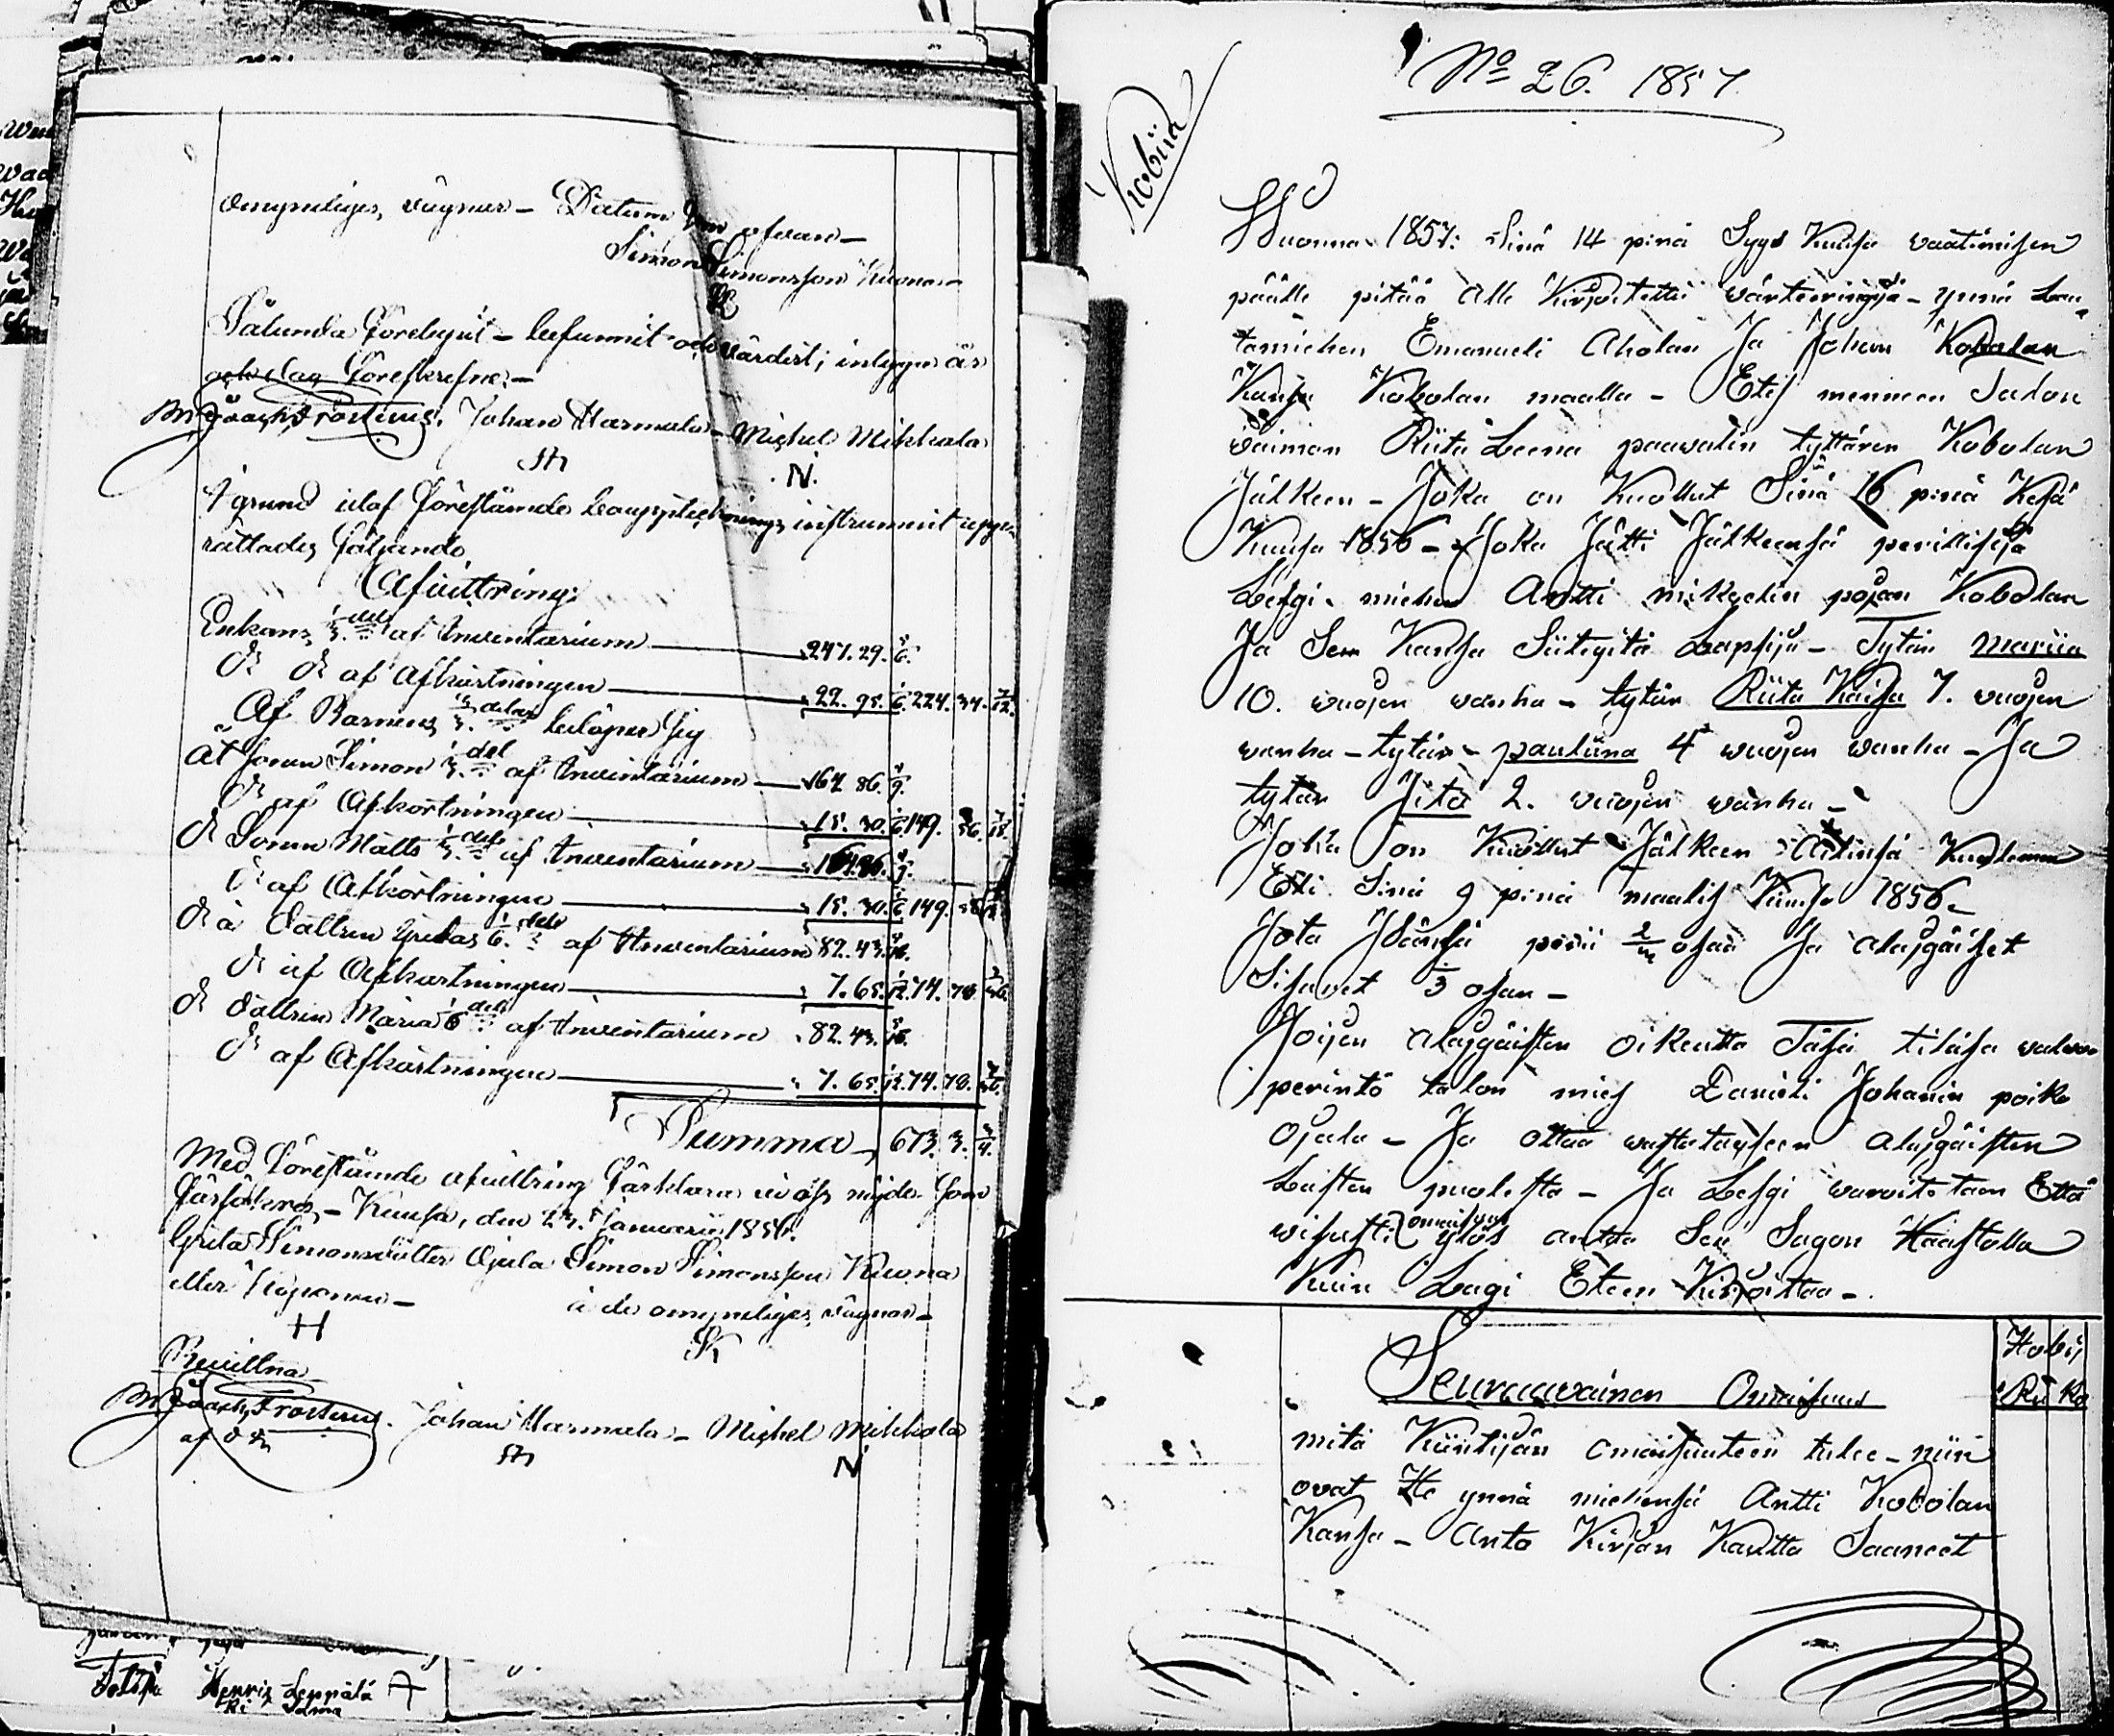 omyndiges, vägnar – Datum som ofvan –
Simon Simonsson Kuona –
Sålunda förelupit – befunnit och värdest; intyga år
och dag föreskrefne –
Johan Harmala – Michel Mikkala
N.
I grund utaf förestående bouppteknings instrument uppr
rättades följande
Afvittring
Enkans 1/3 del af Inventarium 247. 29. 1/6.
D: D: af Afkortningen 22. 95. 1/6. 224. 34.
Af Barnens 2/3 delar belöper sig
åt sonen Simon 1/3 del af Inventarium 164. 86. 1/9.
D: af Afkortningen 15. 30. 149. 56.
D: Sonen Matts 1/3 del af Inventarium 164. 86.
D: af Afkortningen 15. 30. 149. 56.
D: å dottren Gretas 1/6 del af Inventarium 82. 43.
D: af Afkortningen 7. 65. 74. 78.
D: dottren Maria 1/6 del af Inventarium 82. 43.
D: af Afkortningen 7. 65. 74. 78.
Summa 673. 3. 3/4.
Med förestående afvittring förklara vi oss nöjda som
försäkras – Kuusa, den 23. Januarii 1856.
Greta Simonsdotter Ojala Simon Simonsson Kuona
eller
å de omyndiges vägnar –
H
Bevittna
Johan Harmala – Michel Mikkola
N
Henrik Leppälä
No 26. 1857
Kobiia
Wuonna 1857: Sinä 14 pinä Syys Kuusa vaatimisen
päälle pitää Alle Kirjoitettu värteeringiä – ynnä Lau
tamiehen Emanueli Aholan Ja Johan Kobolan
Kansa Kobolan maalla – Etes mennen Talon
Vaimon Riita Leena paavalin tyttären Kobolan
Jälkeen – Joka on Kuollut Sinä 16 pinä Kesä
Kuusa 1856 – Joka Jätti Jälkeensä perillisiä
Lesgi miehen Antti mikkelin pojan Kobolan
Ja Sen Kansa Siitegitä Lapsija – Tytär Mariia
10. vuojen vanha – tytär Riita Kaisa 7. vuojen
vanha – tytär – pauliina 4 vuojen vanha – Ja
tytär Jita 2. vuojen vanha –
Joka on Kuollut Jälkeen Aitinsä Kuoleman
Eli Sinä 9 pinä maalis Kuusa 1856 –
Jota Isänsä perii 2/3 osaa Ja alajgäiset
Sisaret 1/3 osan –
Joijen alajgäisten oikeutta Täsä tilasa valvoo
perintö talon mies Danieli Johanin poika
Ojala – Ja ottaa vastataxseen alajgäisten
Lasten puolesta – Ja Lesgi varoitetaan Että
visusti omaisuus ylös antaa Sen Sagon Haastolla
Kuin Lagi Eteen Kirjoittaa –
Hobij
Ru Ko
Seuraavainen Omaisuus
mitä Kiintijän omaisuuteen tulee – niin
ovat He ynnä miehensä Antti Kobolan
Kansa – Anto Kirjan Kautta Saaneet